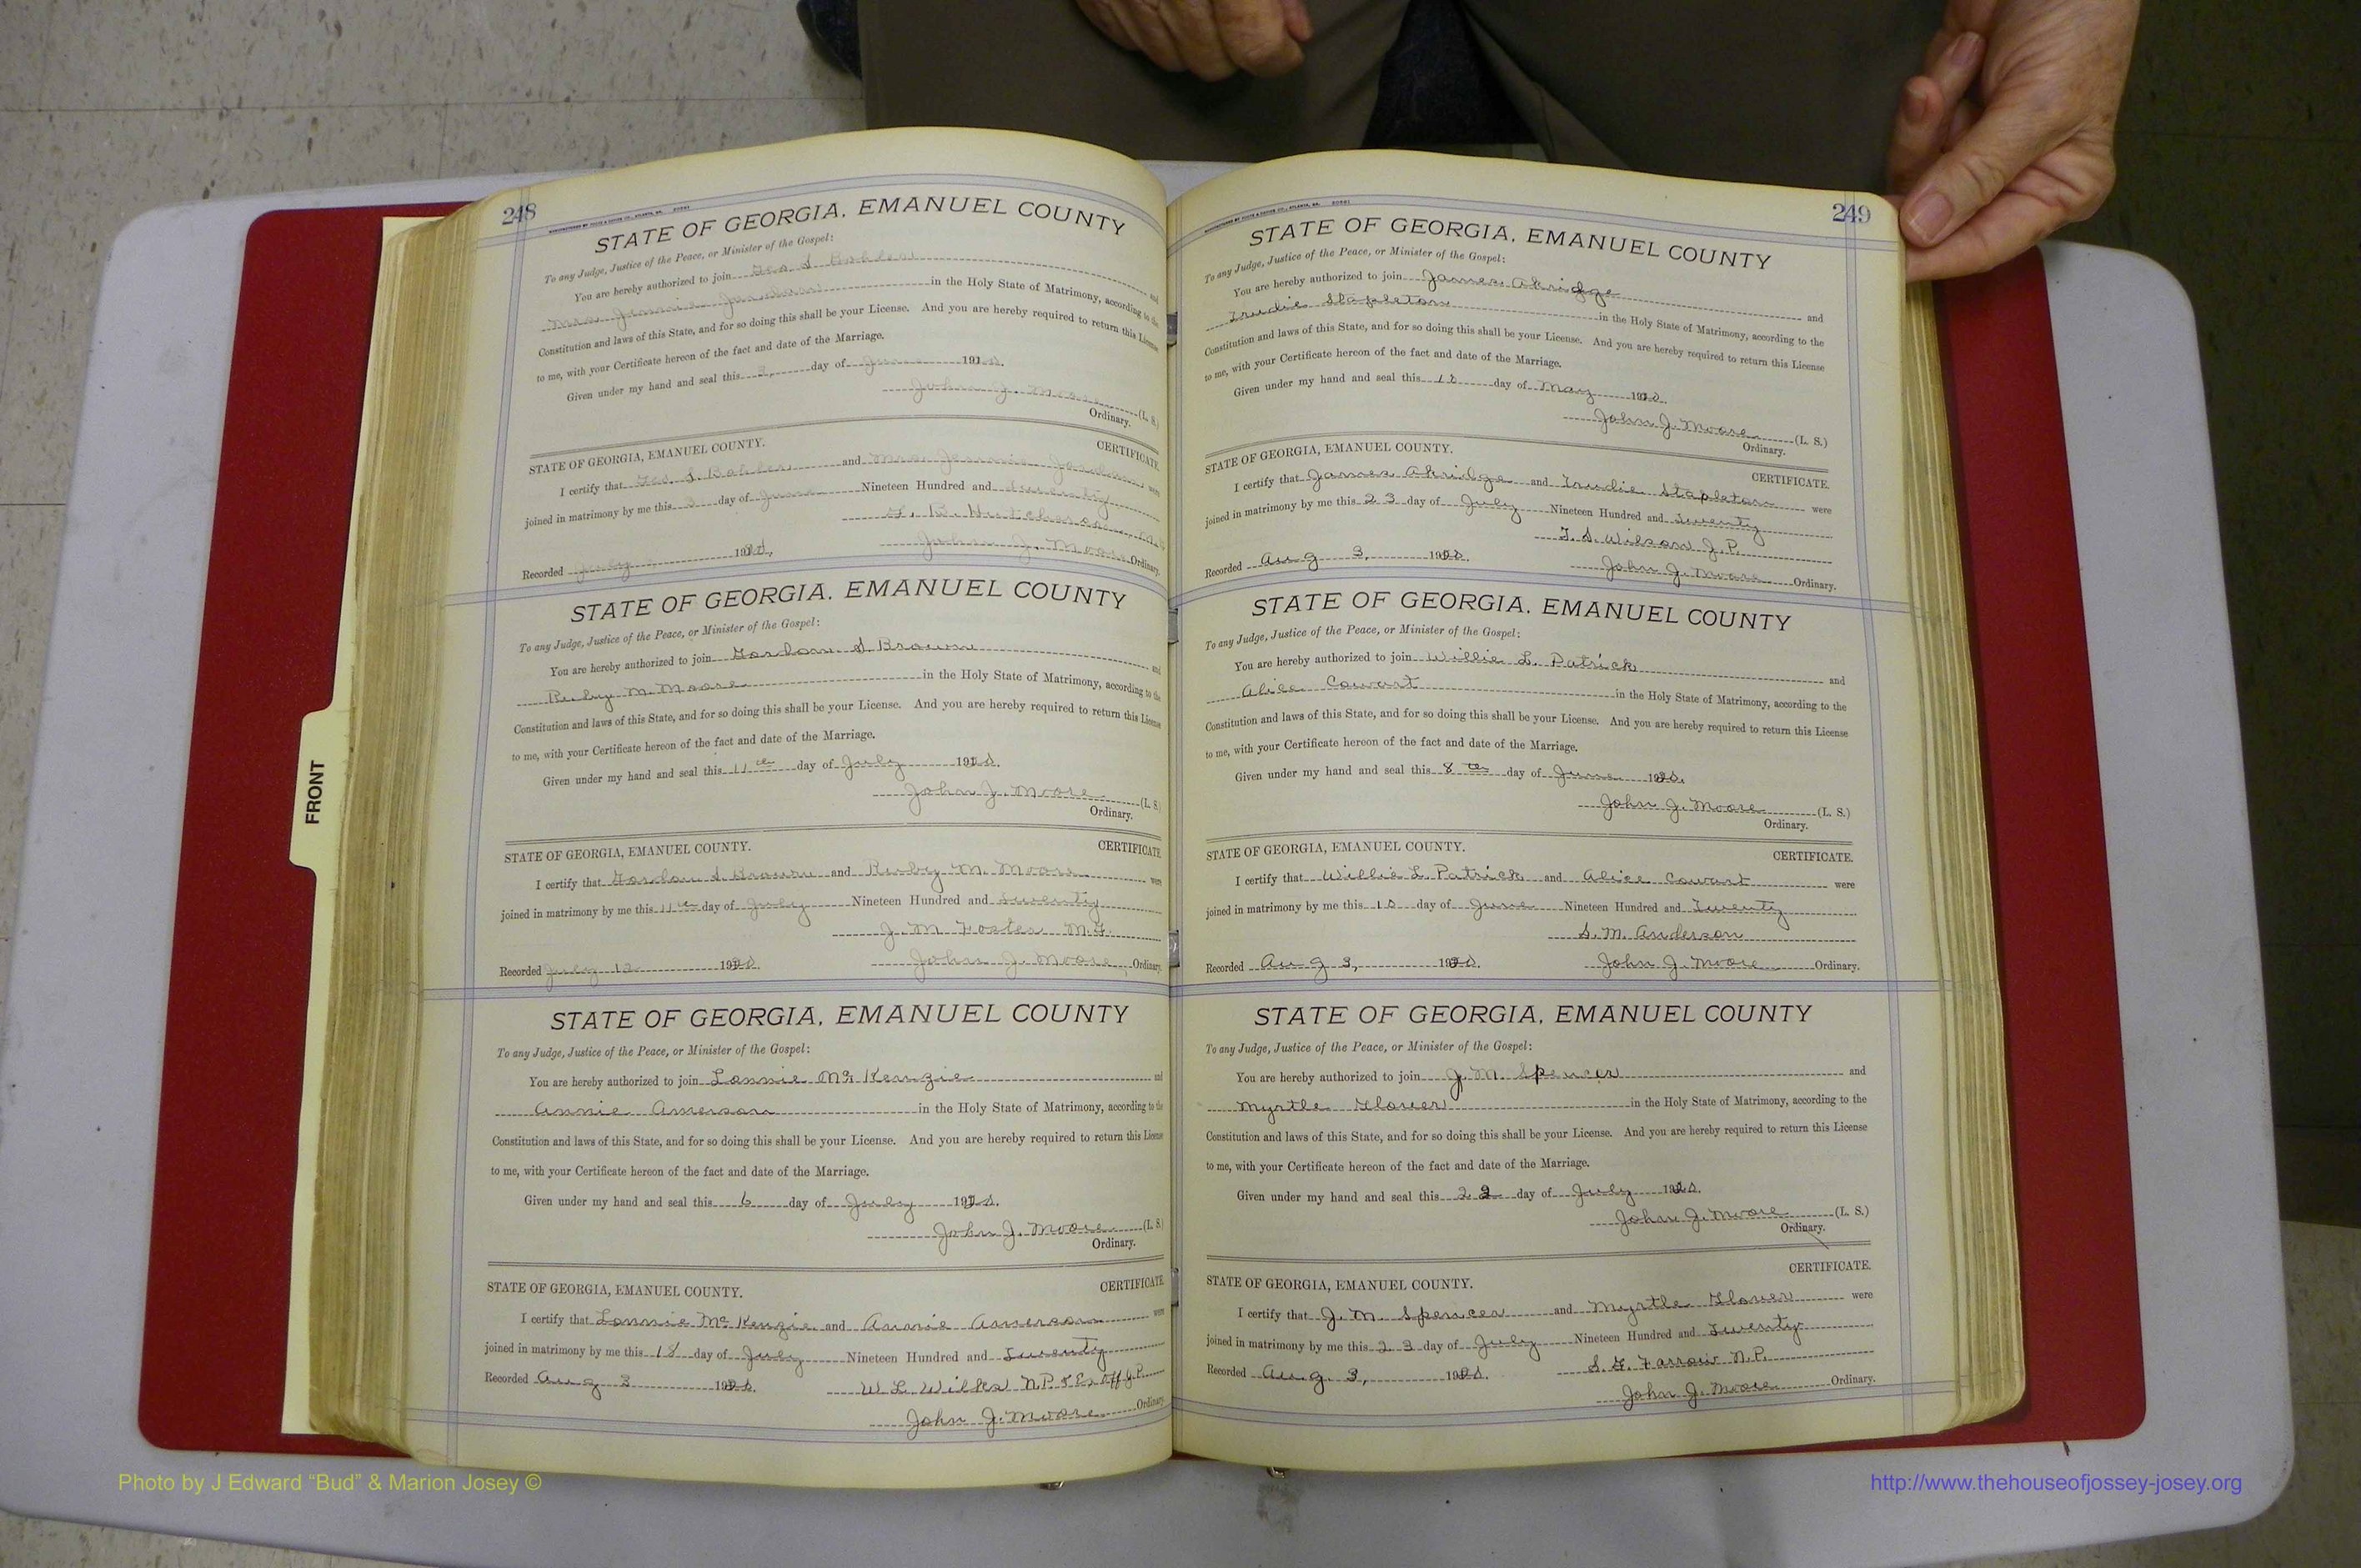 248
STATE OF GEORGIA, EMANUEL COUNTY
To any Judge, Justice of the Peace, or Minister of the Gospel:
You are hereby authorized to join Geo S Bohler and
Mrs Jennie Jordan in the Holy State of Matrimony, according to the
Constitution and laws of this State, and for so doing this shall be your License. And you are hereby required to return this License
to me, with your Certificate hereon of the fact and date of the Marriage.
Given under my hand and seal this 2, day of June 1920.
John J. Moore (L. S.)
Ordinary.
STATE OF GEORGIA, EMANUEL COUNTY. CERTIFICATE.
I certify that Geo. S. Bohler and Mrs. Jennie Jordan were
joined in matrimony by me this day of June Nineteen Hundred and twenty
B. Hutcheson
Recorded July 1920, John J. Moore Ordinary.
STATE OF GEORGIA, EMANUEL COUNTY
To any Judge, Justice of the Peace, or Minister of the Gospel:
You are hereby authorized to join Gordon S. Brown and
Ruby M. Moore in the Holy State of Matrimony, according to the
Constitution and laws of this State, and for so doing this shall be your License. And you are hereby required to return this License
to me, with your Certificate hereon of the fact and date of the Marriage.
Given under my hand and seal this 11th day of July 1920.
John J. Moore (L. S.)
Ordinary.
STATE OF GEORGIA, EMANUEL COUNTY. CERTIFICATE
I certify that Gordon S Brown and Ruby M. Moore were
joined in matrimony by me this 11th day of July Nineteen Hundred and twenty
J. M Foster M.G.
Recorded July 12 1920. John J. Moore, Ordinary.
STATE OF GEORGIA, EMANUEL COUNTY
To any Judge, Justice of the Peace, or Minister of the Gospel:
You are hereby authorized to join Lonnie McKenzie and
Annie Amerson in the Holy State of Matrimony, according to the
Constitution and laws of this State, and for so doing this shall be your License. And you are hereby required to return this License
to me, with your Certificate hereon of the fact and date of the Marriage.
Given under my hand and seal this 6 day of July 1920.
John J. Moore (L. S.)
Ordinary.
STATE OF GEORGIA, EMANUEL COUNTY. CERTIFICATE.
I certify that Lonnie McKenzie and Annie Amerson were
joined in matrimony by me this 18 day of July Nineteen Hundred and Twenty
Recorded Aug 3 1920. W L. Wilkes N.P. & Ex. off J.P.
John J. Moore Ordinary
249
STATE OF GEORGIA, EMANUEL COUNTY
To any Judge, Justice of the Peace, or Minister of the Gospel:
You are hereby authorized to join James Akridge and
Trudie Stapleton in the Holy State of Matrimony, according to the
Constitution and laws of this State, and for so doing this shall be your License. And you are hereby required to return this License
to me, with your Certificate hereon of the fact and date of the Marriage.
Given under my hand and seal this 18 day of May 1920.
John J. Moore (L. S.)
Ordinary.
STATE OF GEORGIA, EMANUEL COUNTY. CERTIFICATE.
I certify that James Akridge and Trudie Stapleton were
joined in matrimony by me this 23 day of July Nineteen Hundred and Twenty
T. S. Wilson J.P.
Recorded Aug 3, 1920. John J. Moore Ordinary.
STATE OF GEORGIA, EMANUEL COUNTY
To any Judge, Justice of the Peace, or Minister of the Gospel:
You are hereby authorized to join Willie L. Patrick and
Alice Cowart in the Holy State of Matrimony, according to the
Constitution and laws of this State, and for so doing this shall be your License. And you are hereby required to return this License
to me, with your Certificate hereon of the fact and date of the Marriage.
Given under my hand and seal this 8th day of June 1920.
John J. Moore (L. S.)
Ordinary.
STATE OF GEORGIA, EMANUEL COUNTY. CERTIFICATE.
I certify that Willie L. Patrick and Alice Cowart were
joined in matrimony by me this 10 day of June Nineteen Hundred and Twenty
S. M. Anderson
Recorded Aug 3, 1920. John J. Moore Ordinary.
STATE OF GEORGIA, EMANUEL COUNTY
To any Judge, Justice of the Peace, or Minister of the Gospel:
You are hereby authorized to join J. M. Spencer and
Myrtle Glover in the Holy State of Matrimony, according to the
Constitution and laws of this State, and for so doing this shall be your License. And you are hereby required to return this License
to me, with your Certificate hereon of the fact and date of the Marriage.
Given under my hand and seal this 22 day of July 1920.
John J. Moore (L. S.)
Ordinary.
STATE OF GEORGIA, EMANUEL COUNTY. CERTIFICATE.
I certify that J. M. Spencer and Myrtle Glover were
joined in matrimony by me this 23 day of July Nineteen Hundred and Twenty
Recorded Aug. 3, 1920. S. G. Farrow N.P.
John J. Moore Ordinary.
FRONT
Photo by J Edward “Bud” & Marion Josey ©
http://www.thehouseofjossey-josey.org